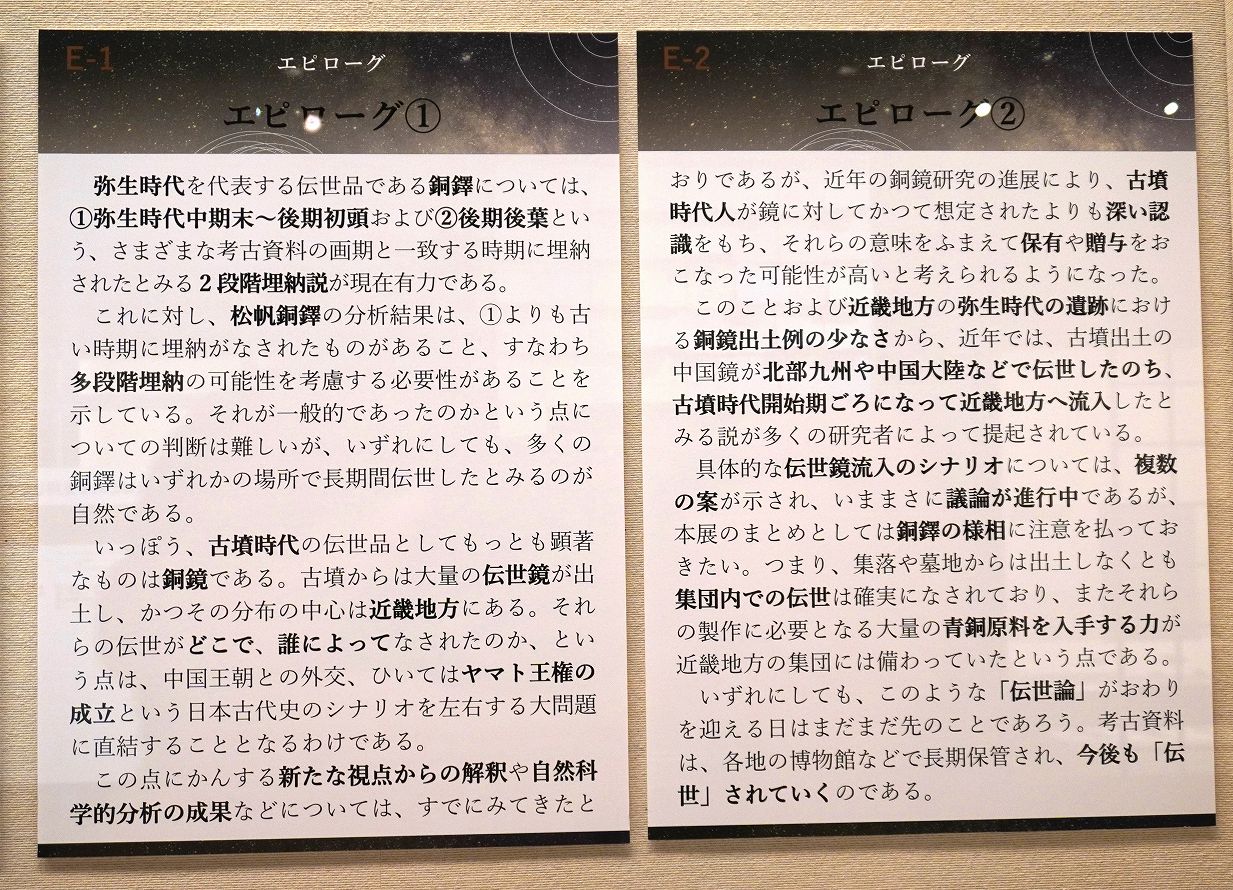 E-1
エピローグ
エピローグ①
弥生時代を代表する伝世品である銅鐸については、
①弥生時代中期末～後期初頭および②後期後葉とい
う、さまざまな考古資料の画期と一致する時期に埋納
されたとみる2段階埋納説が現在有力である。
これに対し、松帆銅鐸の分析結果は、①よりも古
い時期に埋納がなされたものがあること、すなわち
多段階埋納の可能性を考慮する必要性があることを
示している。それが一般的であったのかという点に
ついての判断は難しいが、いずれにしても、多くの
銅鐸はいずれかの場所で長期間伝世したとみるのが
自然である。
いっぽう、古墳時代の伝世品としてもっとも顕著
なものは銅鏡である。古墳からは大量の伝世鏡が出
土し、かつその分布の中心は近畿地方にある。それ
らの伝世がどこで、誰によってなされたのか、とい
う点は、中国王朝との外交、ひいてはヤマト王権の
成立という日本古代史のシナリオを左右する大問題
に直結することとなるわけである。
この点にかんする新たな視点からの解釈や自然科
学的分析の成果などについては、すでにみてきたと
E-2
エピローグ
エピローグ②
おりであるが、近年の銅鏡研究の進展により、古墳
時代人が鏡に対してかつて想定されたよりも深い認
識をもち、それらの意味をふまえて保有や贈与をお
こなった可能性が高いと考えられるようになった。
このことおよび近畿地方の弥生時代の遺跡におけ
る銅鏡出土例の少なさから、近年では、古墳出土の
中国鏡が北部九州や中国大陸などで伝世したのち、
古墳時代開始期ごろになって近畿地方へ流入したと
みる説が多くの研究者によって提起されている。
具体的な伝世鏡流入のシナリオについては、複数
の案が示され、いままさに議論が進行中であるが、
本展のまとめとしては銅鐸の様相に注意を払ってお
きたい。つまり、集落や墓地からは出土しなくとも
集団内での伝世は確実になされており、またそれら
の製作に必要となる大量の青銅原料を入手する力が
近畿地方の集団には備わっていたという点である。
いずれにしても、このような「伝世論」がおわり
を迎える日はまだまだ先のことであろう。考古資料
は、各地の博物館などで長期保管され、今後も「伝
世」されていくのである。